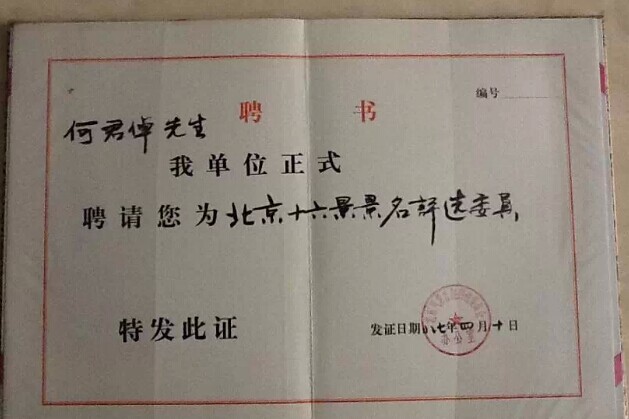 编号
聘 书
何君倬先生
我单位正式
聘请您为北京十六景景名评选委员
特发此证
发证日期八七年四月十日
办公室